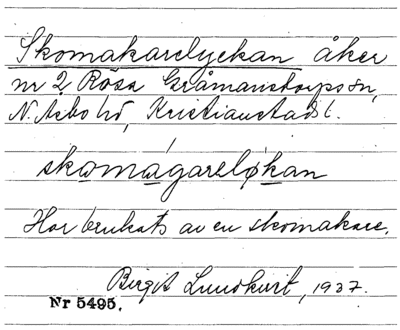 Skomakarelyckan åker
nr 2 Rösa Gråmanstorps sn,
N. Åsbo hd, Kristianstads l.
skomagareløkan
Har brukats av en skomakare.
Birgit Lundkvist, 1937.
Nr 5495.